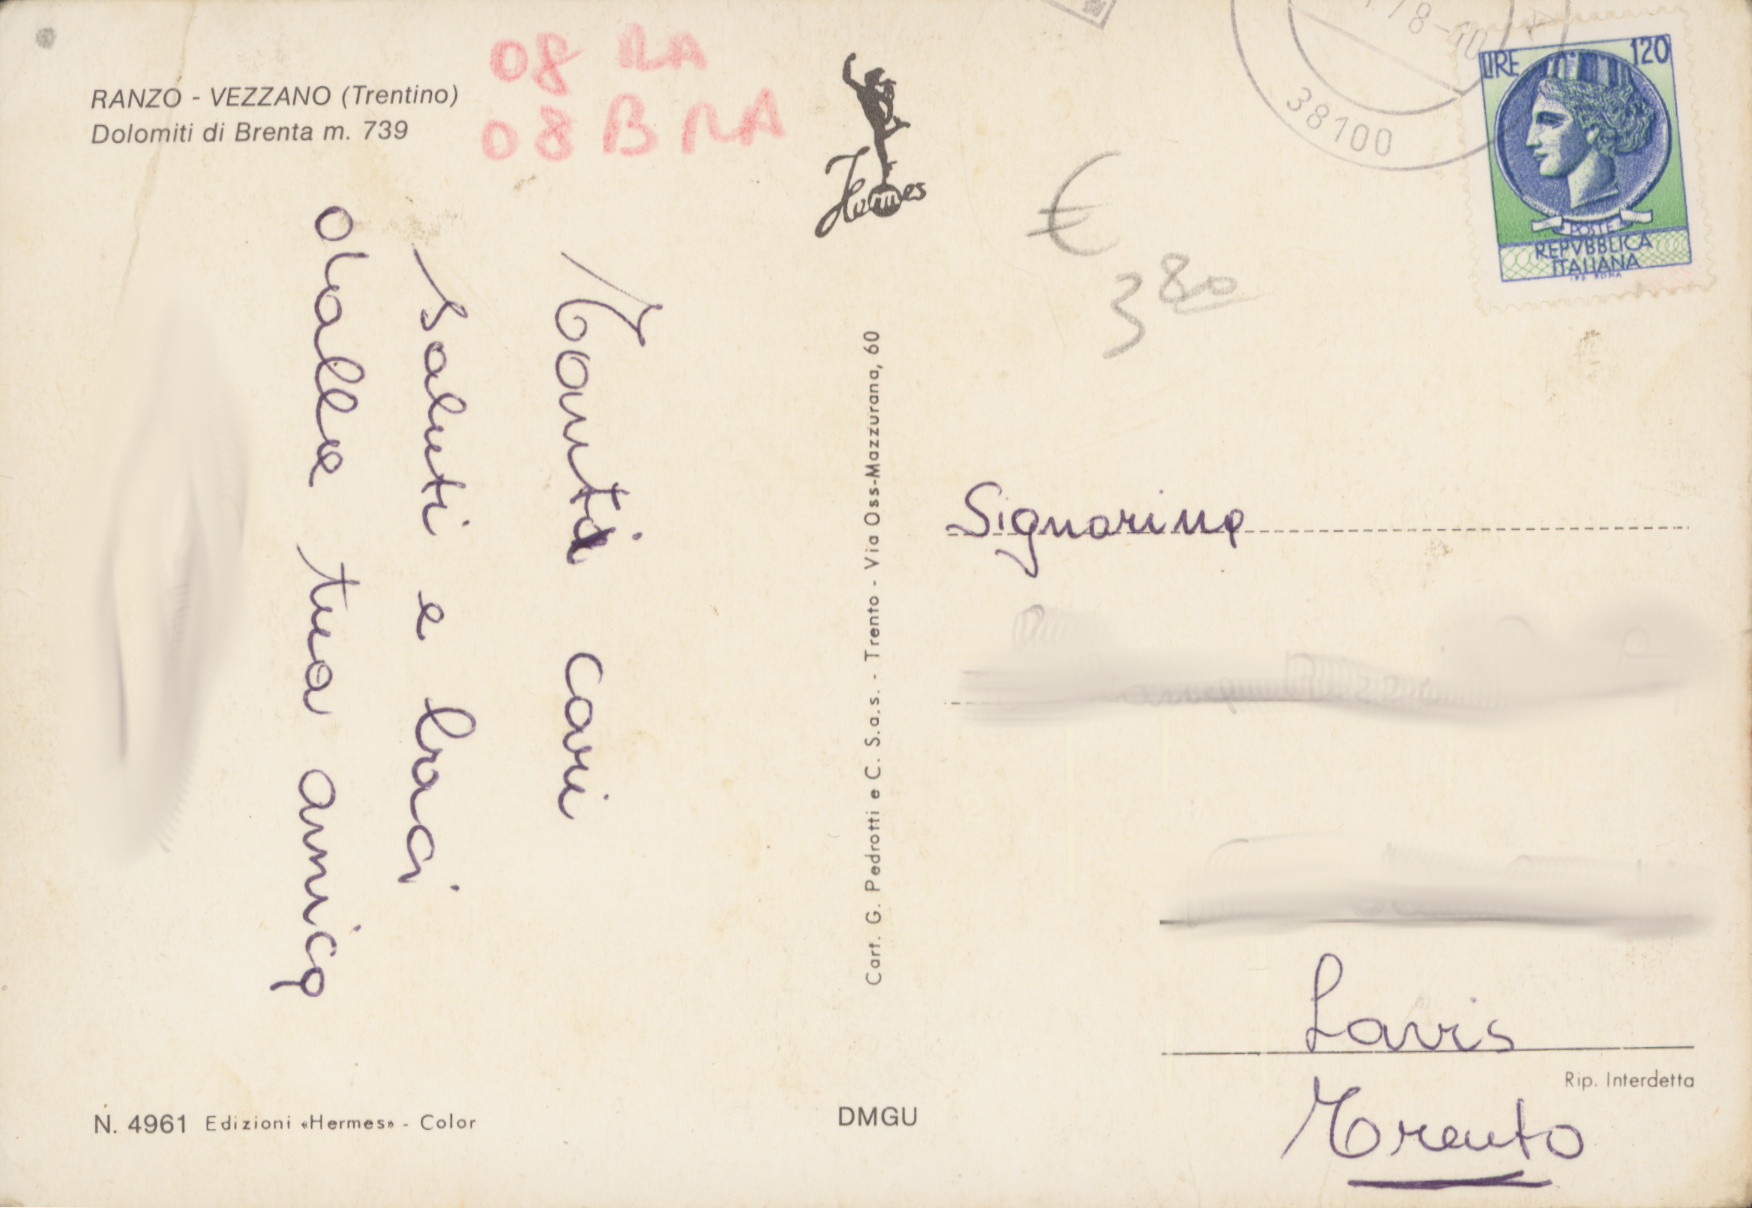 RANZO - VEZZANO (Trentino)
Dolomiti di Brenta m. 739
08 RA
08 BRA
Hermes
78-10
38100
LIRE 120
POSTE
REPVBBLICA
ITALIANA
€
3 80
Tanti cari
saluti e baci
dalla tua amica
Cart. G. Pedrotti e C. S.a.s. - Trento - Via Oss-Mazzurana, 60
Signorina
Lavis
Rip. Interdetta
Trento
N. 4961 Edizioni «Hermes» - Color
DMGU